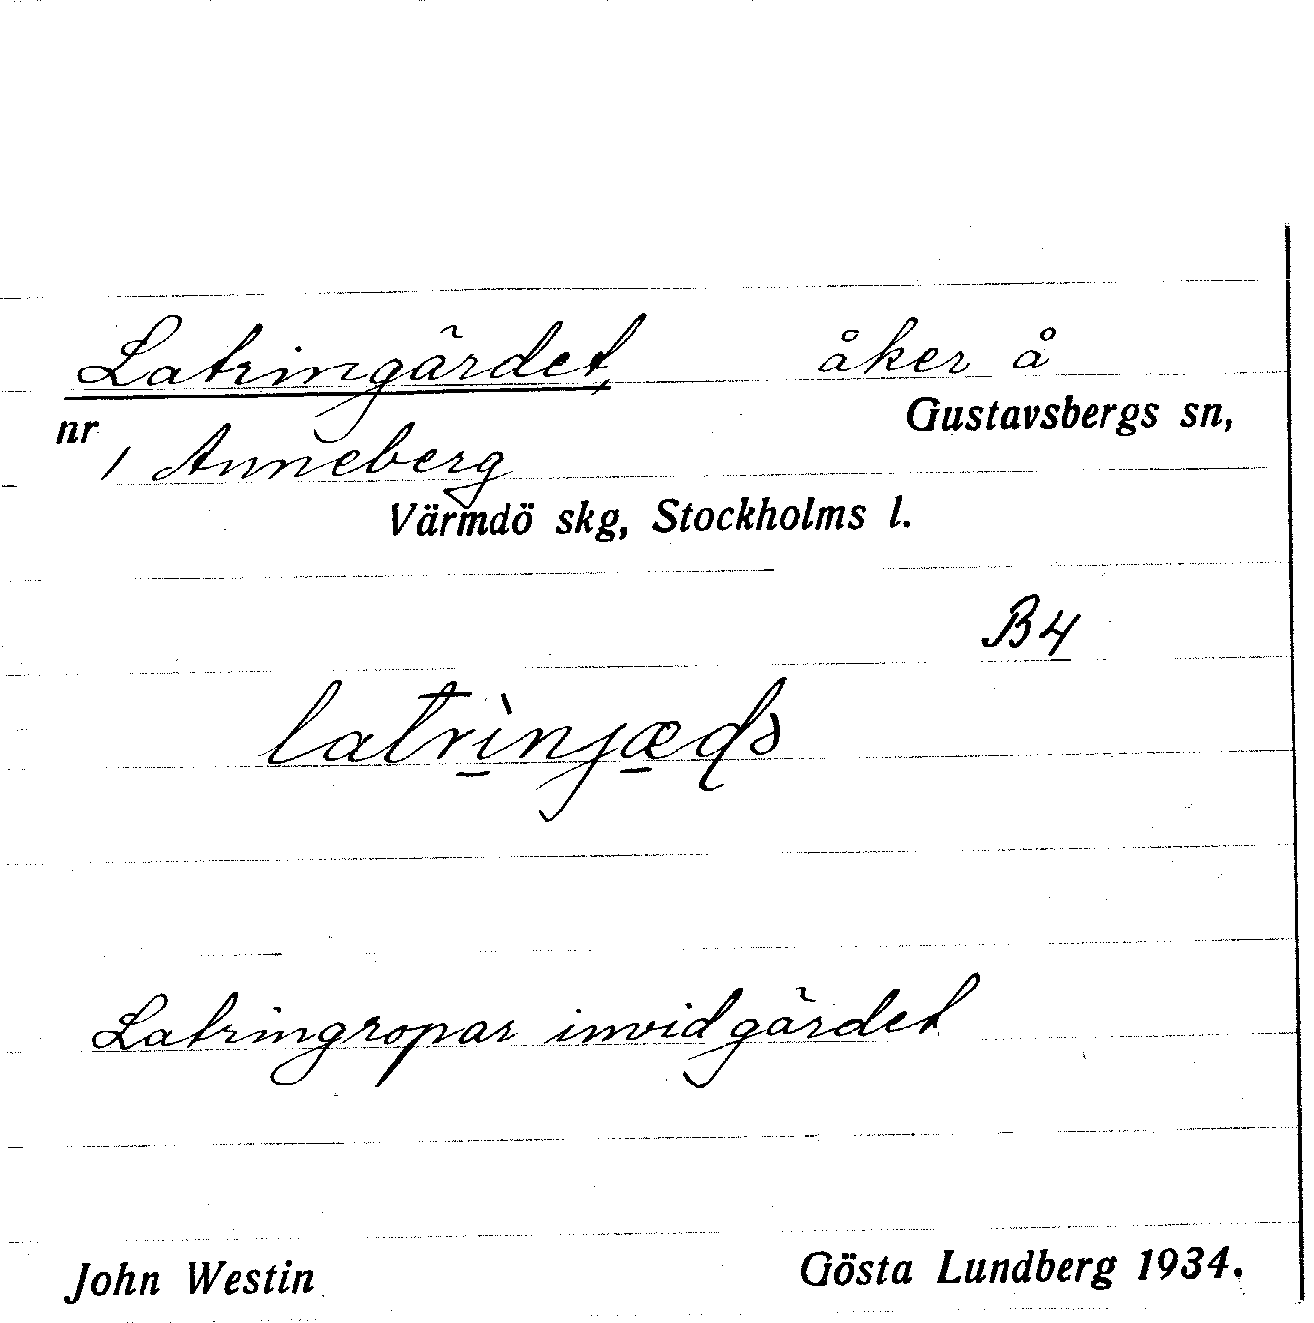 Latringärdet, åker å
nr Gustavsbergs sn,
1 Anneberg
Värmdö skg, Stockholms l.
B4
Latringropar invid gärdet
John Westin Gösta Lundberg 1934.